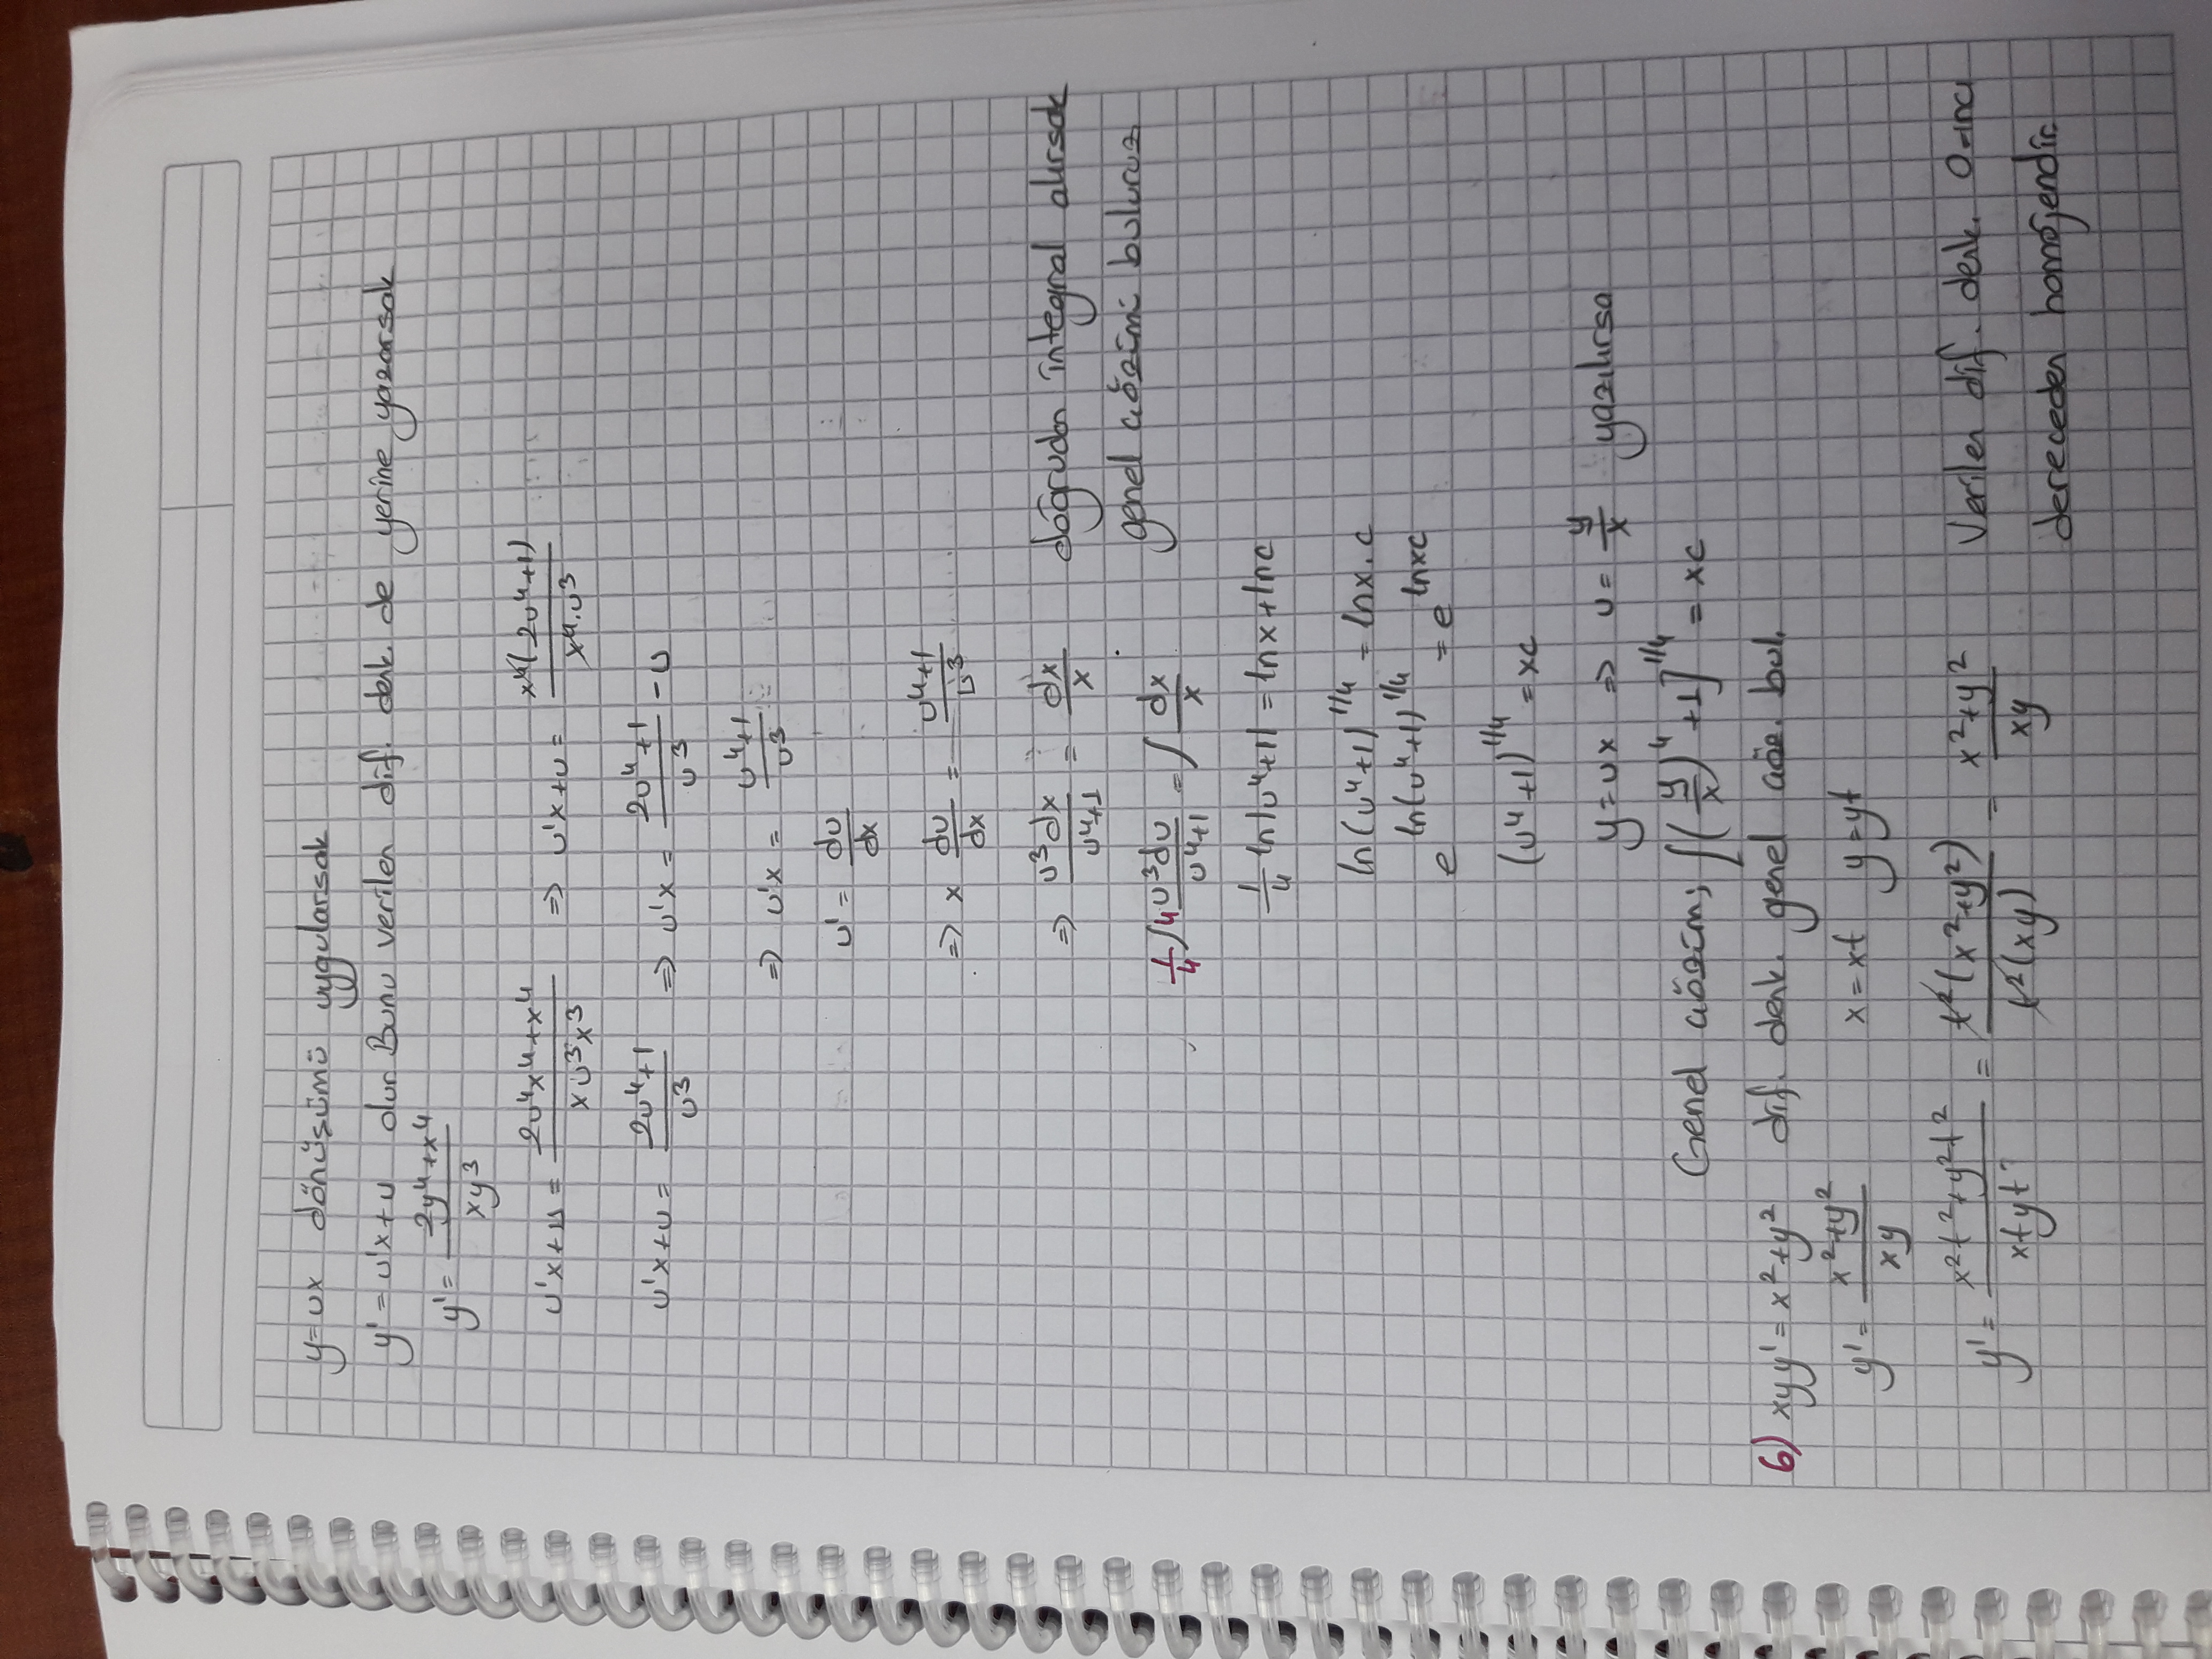 y=ux dönüşümü uygularsak
y' = u'x+u olur Bunu verilen dif. denk. de yerine yazarsak
y' = (2y⁴+x⁴)/(xy³)
u'x+u = (2u⁴x⁴+x⁴)/(xu³x³) ⇒ u'x+u = (x⁴(2u⁴+1))/(x⁴.u³)
u'x+u = (2u⁴+1)/(u³) ⇒ u'x = (2u⁴+1)/(u³) -u
⇒ u'x = (u⁴+1)/(u³)
u' = du/dx
⇒ x du/dx = (u⁴+1)/(u³)
⇒ (u³dx)/(u⁴+1) = dx/x doğrudan integral alırsak
genel çözümü buluruz
1/4 ∫ (4u³du)/(u⁴+1) = ∫ dx/x
1/4 ln|u⁴+1| = lnx+lnc
ln(u⁴+1)^1/4 = lnx.c
e^(ln(u⁴+1)^1/4) = e^(lnxc)
(u⁴+1)^1/4 = xc
y=ux ⇒ u = y/x yazılırsa
Genel çözüm; [(y/x)⁴+1]^1/4 = xc
6) xyy' = x²+y² dif. denk. genel çöz. bul.
y' = (x²+y²)/(xy) x=xt y=yt
y' = (x²t²+y²t²)/(xtyt) = (t²(x²+y²))/(t²(xy)) = (x²+y²)/(xy) Verilen dif. denk. 0-ıncı
dereceden homojendir.